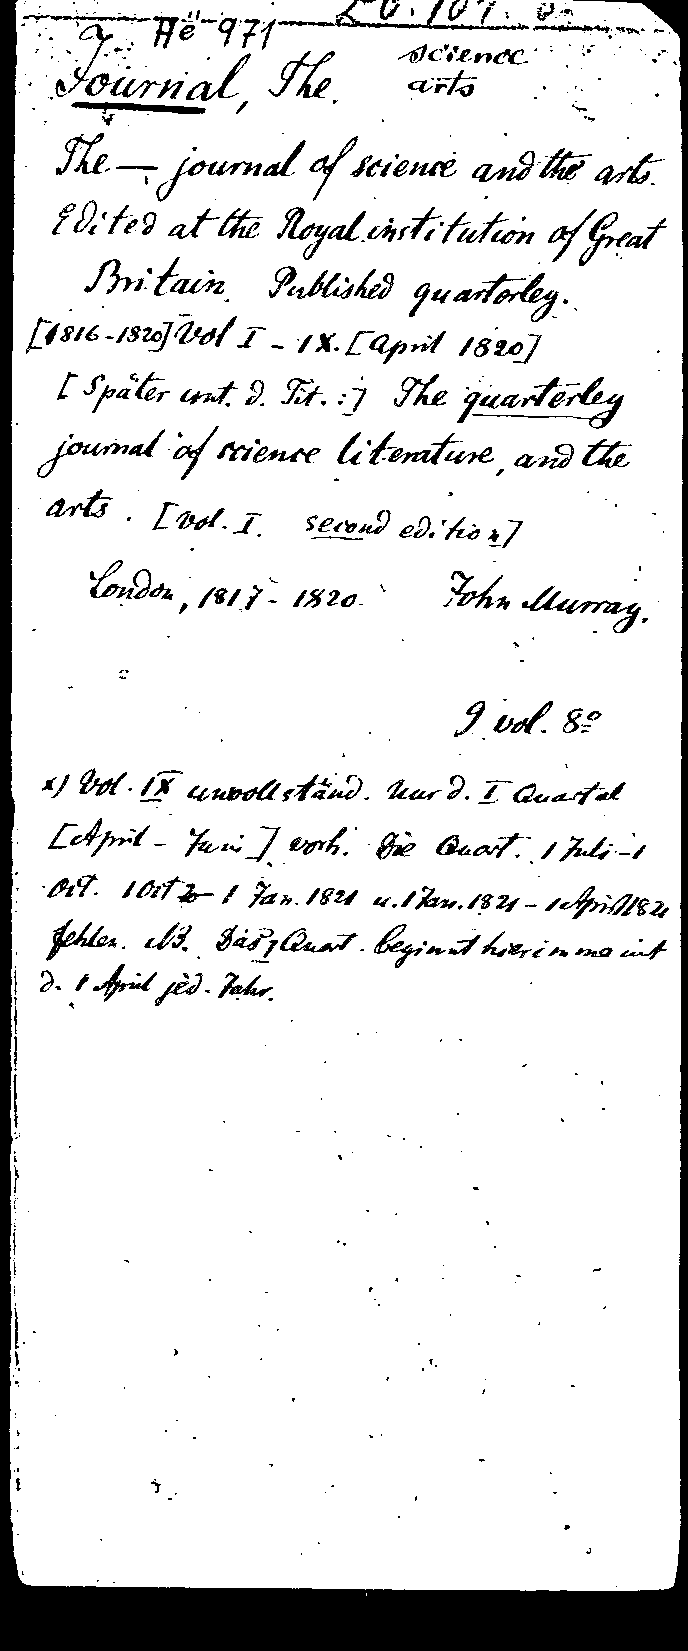 a Hë 971
science
Journal, The. arts
The — journal of science and the arts.
Edited at the Royal institution of Great
Britain. Published quarterley.
[1816-1820] Vol I - IX. [April 1820]
[Später unt. d. Tit.:] The quarterley
journal of science literature, and the
arts. [Vol. I. second edition]
London, 1817 - 1820. John Murray.
9 vol. 8º
x) Vol. IX unvollständ. Nur d. I Quartal
[April - Junis] vorh. Die Quart. 1 Juli - 1
Oct. 1 Oct 1 Jan. 1821 u. 1 Jan. 1821 - 1 April 1821
fehlen. NB. Das I Quart. beginnt hier immer mit
d. 1 April jed. Jahr.